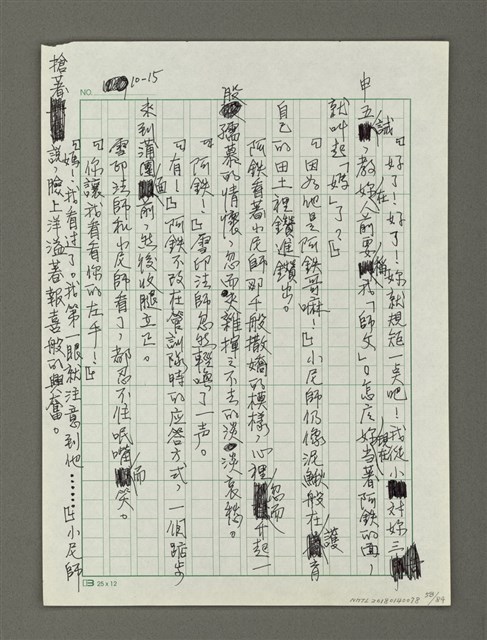 NO. 10-15
『好了！好了！妳就規矩一点吧！我從小对妳三
申五誡，教妳在人前要稱我「師父」。怎麼妳現在当著阿鉄的面，
就叫起「媽」了？』
『因為他是阿鉄哥嘛！』小尼師仍像泥鰍般在護育
自己的田土裡鑽進鑽出。
阿鉄看著小尼師那千般撒嬌的模樣，心裡忽而升起一
股孺慕的情懷，忽而又雜揮之不去的淡淡哀愁。
『阿鉄！』雪印法師忽然輕喚了一声。
『有！』阿鉄不改在管訓隊時的应答方式，一個踮步
來到蒲團面前，然後收腿立正。
雪印法師和小尼師看了，都忍不住哎嘴而笑。
『你讓我看看你的左手！』
『媽！我看过了。我第一眼就注意到他……』小尼師
搶著說，臉上洋溢著報喜般的興奮。
25x12
NMTL20180140078